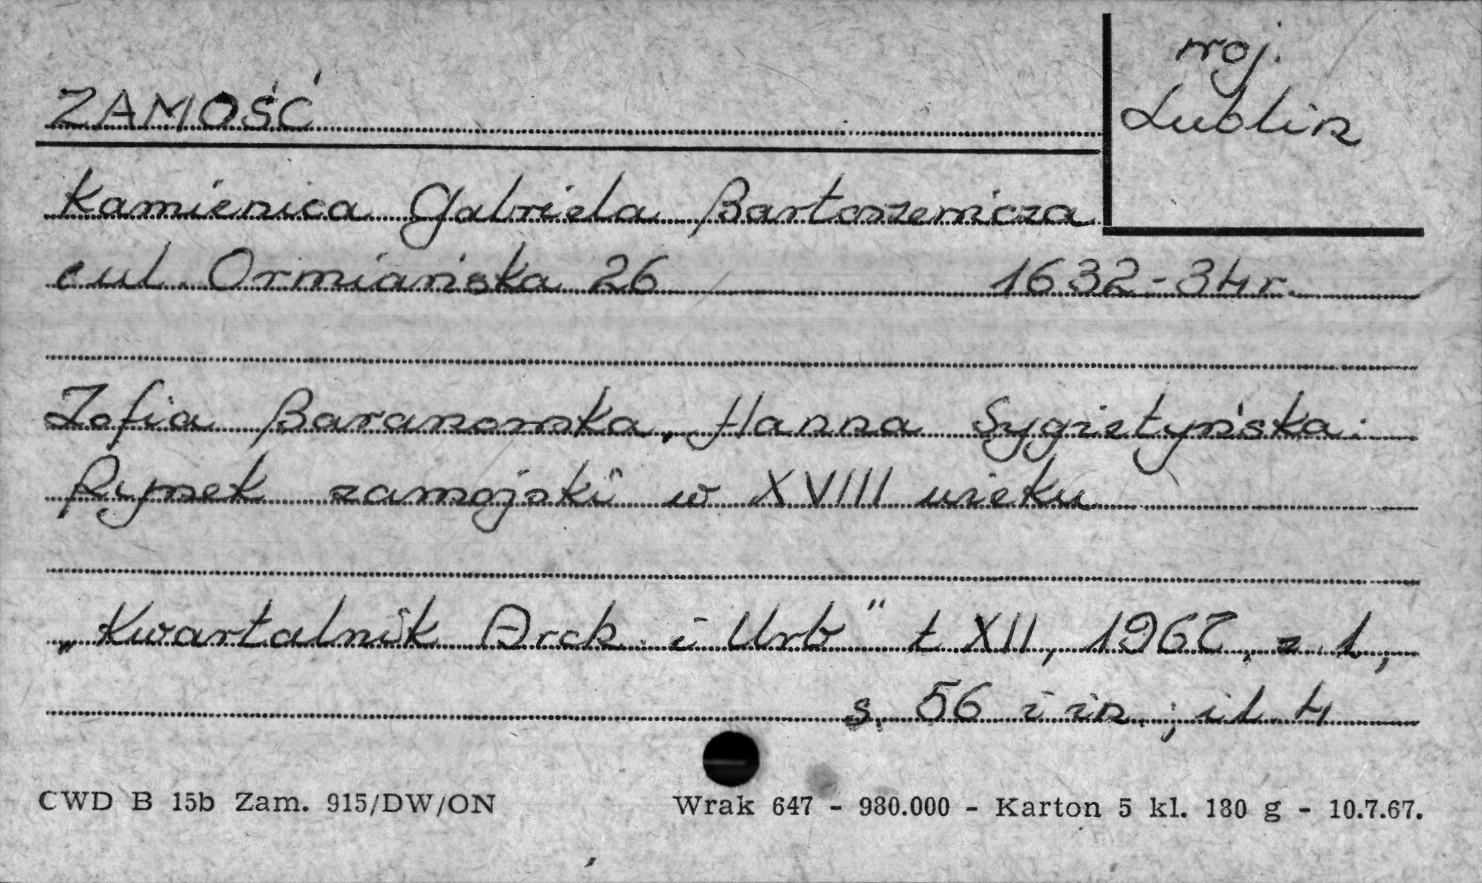 woj.
Lublin
ZAMOŚĆ
Kamienica Gabriela Bartoszewicza
ul. Ormiańska 26 1632-34r.
Zofia Baranowska, Hanna Sygietyńska:
Rynek zamojski w XVIII wieku
„Kwartalnik Arch. i Urb" t XII, 1967, z 1,
s. 56 i in.; il. 4
CWD B 15b Zam. 915/DW/ON
Wrak 647 - 980.000 - Karton 5 kl. 180 g - 10.7.67.